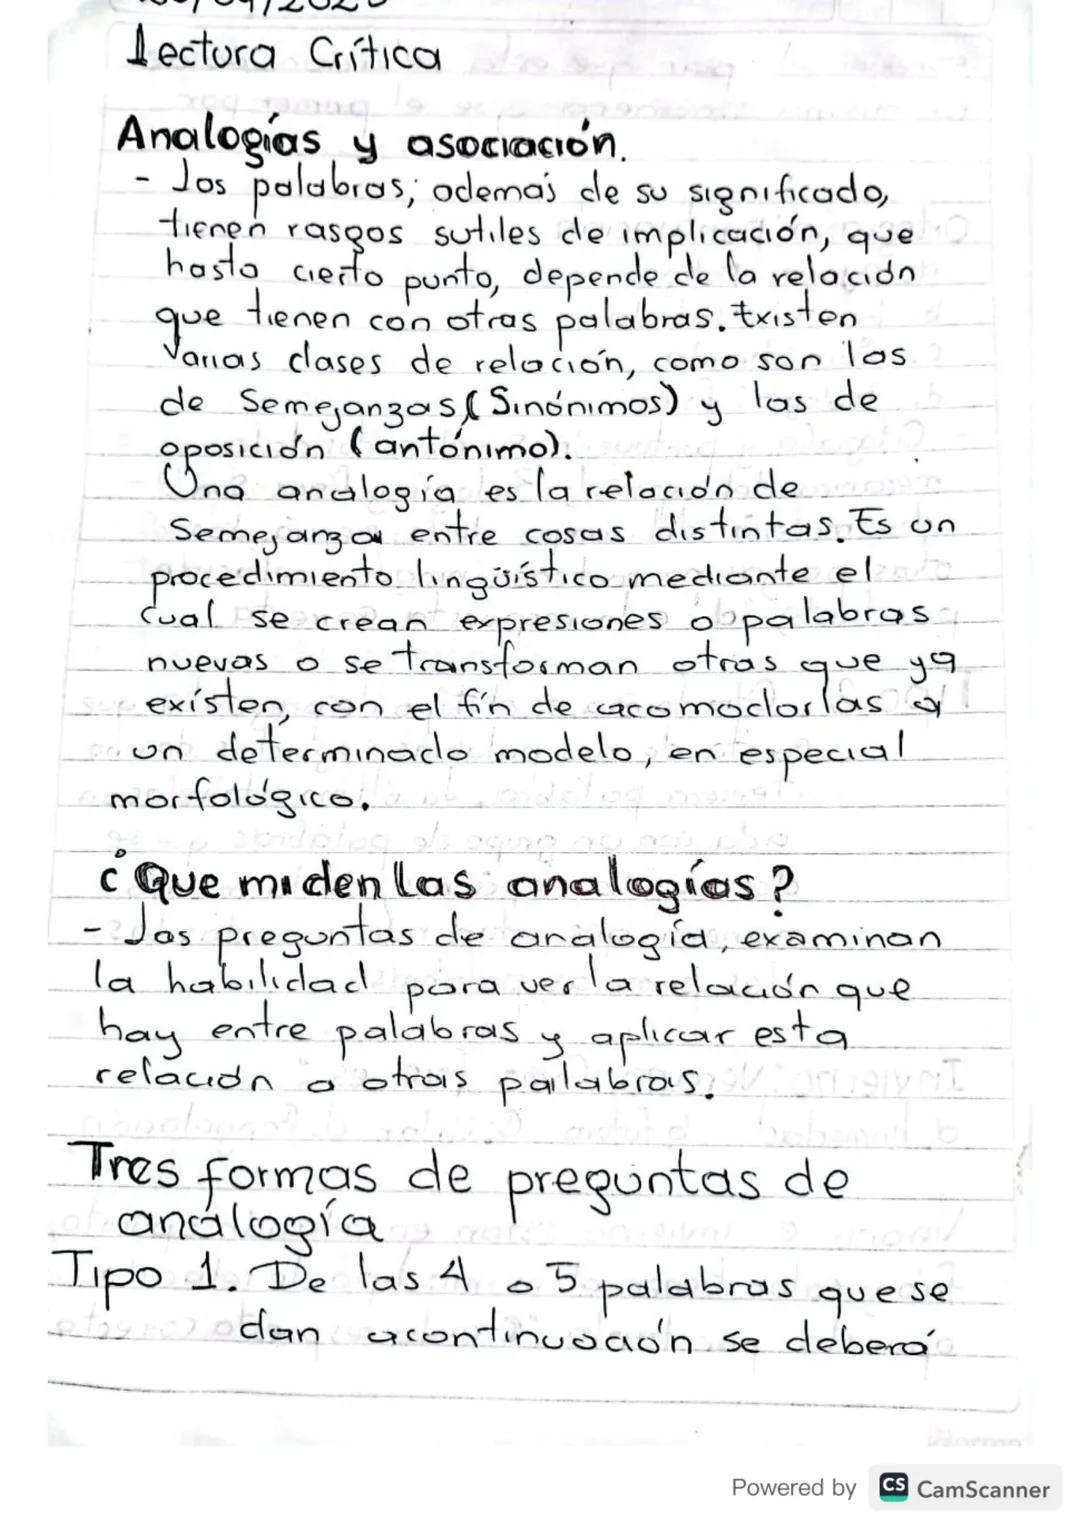 Lectura Crítica
Analogías y asociación.
- Las palabras; además de su significado,
tienen rasgos sutiles de implicación, que
hasta cierto punto, depende de la relación
que tienen con otras palabras. Existen
Varias clases de relación, como son las
de Semejanzas (Sinónimos) y las de
oposición (antónimo).
Una analogía es la relación de
Semejanza entre cosas distintas. Es un
procedimiento lingüístico mediante el
cual se crean expresiones o palabras
nuevas o se transforman otras que ya
existen, con el fín de acomodarlas a
un determinado modelo, en especial
morfológico.
¿Que miden las analogías?
- Las preguntas de analogía, examinan
la habilidad para ver la relación que
hay entre palabras y aplicar esta
relación a otras palabras.
Tres formas de preguntas de
analogía
Tipo 1. De las 4 o 5 palabras que se
dan acontinuación se deberá
Powered by CS CamScanner